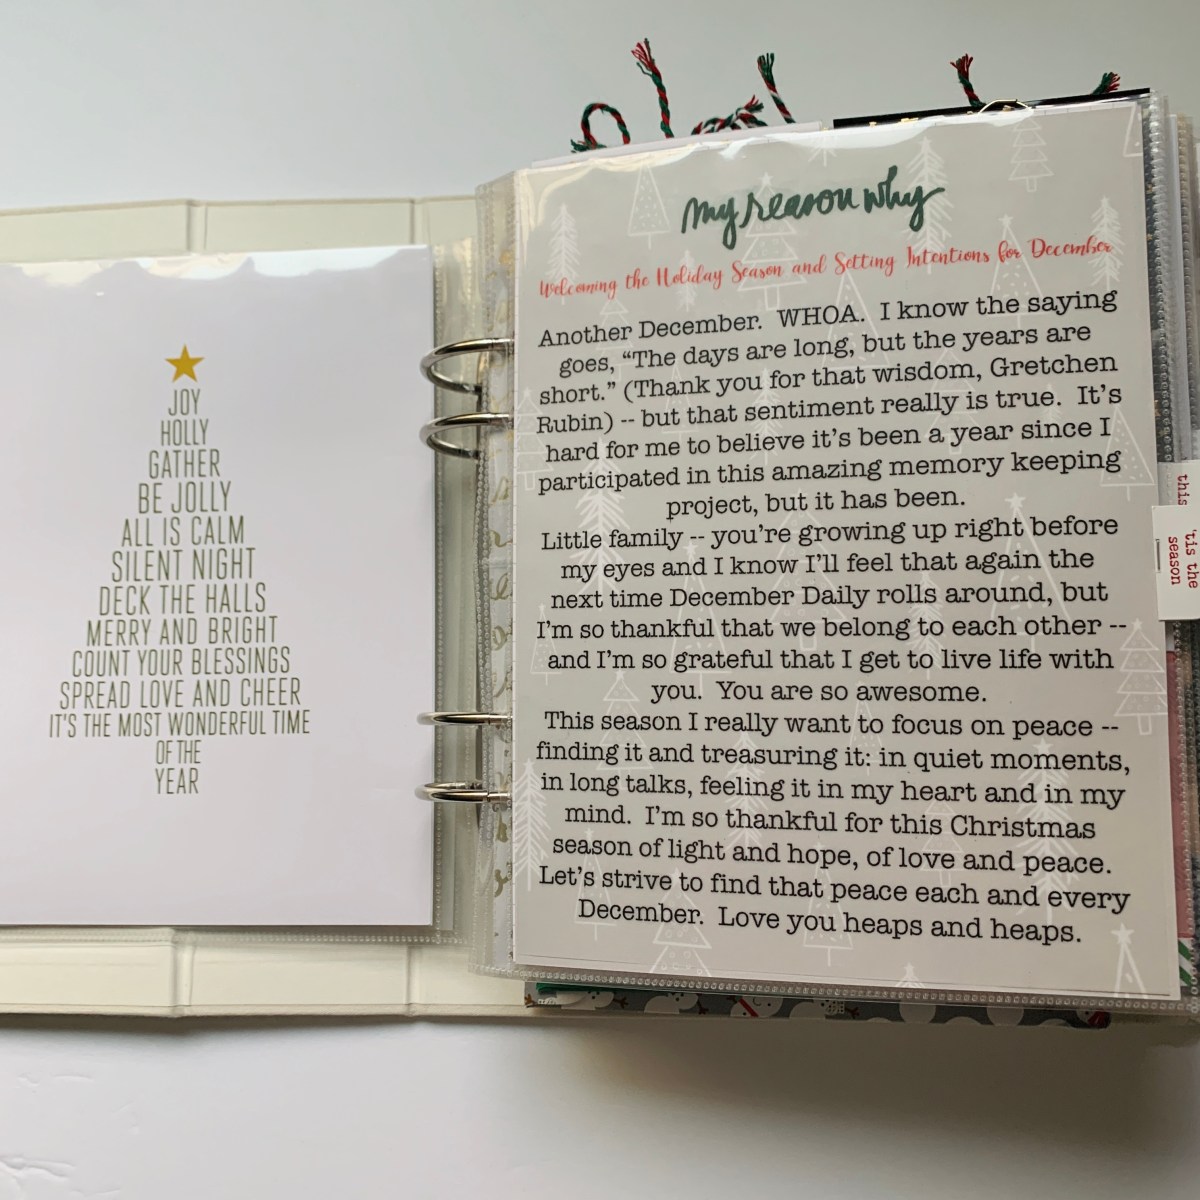 JOY
HOLLY
GATHER
BE JOLLY
ALL IS CALM
SILENT NIGHT
DECK THE HALLS
MERRY AND BRIGHT
COUNT YOUR BLESSINGS
SPREAD LOVE AND CHEER
IT'S THE MOST WONDERFUL TIME
OF THE
YEAR
my reason why
Welcoming the Holiday Season and Setting Intentions for December
Another December. WHOA. I know the saying
goes, “The days are long, but the years are
short.” (Thank you for that wisdom, Gretchen
Rubin) -- but that sentiment really is true. It’s
hard for me to believe it’s been a year since I
participated in this amazing memory keeping
project, but it has been.
Little family -- you’re growing up right before
my eyes and I know I’ll feel that again the
next time December Daily rolls around, but
I’m so thankful that we belong to each other --
and I’m so grateful that I get to live life with
you. You are so awesome.
This season I really want to focus on peace --
finding it and treasuring it: in quiet moments,
in long talks, feeling it in my heart and in my
mind. I’m so thankful for this Christmas
season of light and hope, of love and peace.
Let’s strive to find that peace each and every
December. Love you heaps and heaps.
this
'tis the
season